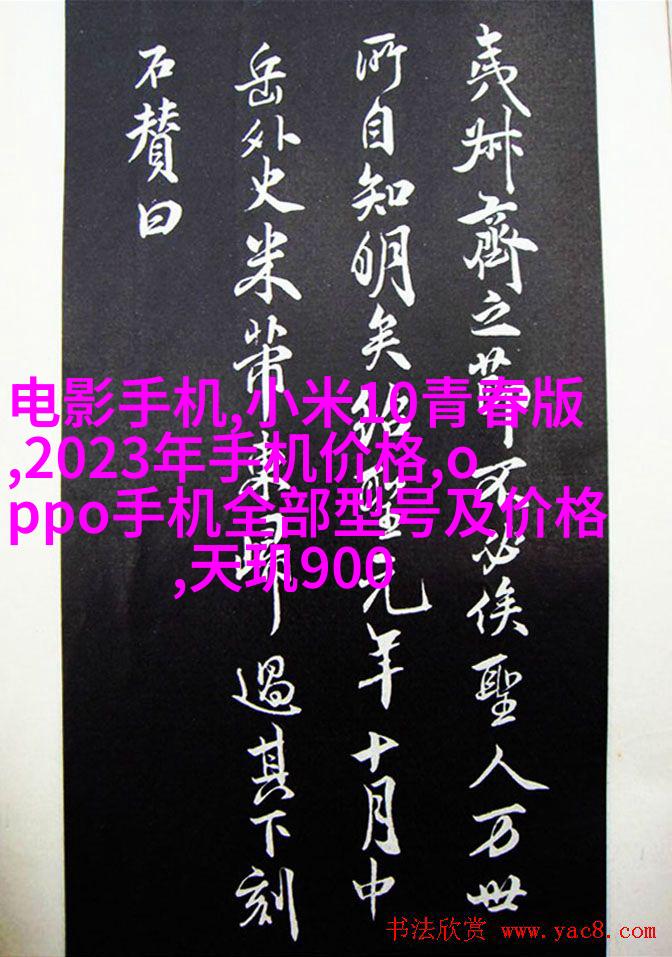 夷叔齊之節不必俟聖人万世
所自知明矣紹聖元年十月中
岳外史米芾東歸過其下刻
石賛曰
电影手机,小米10青春版
,2023年手机价格,o
ppo手机全部型号及价格
,天玑900
书法欣赏 www.yac8.com